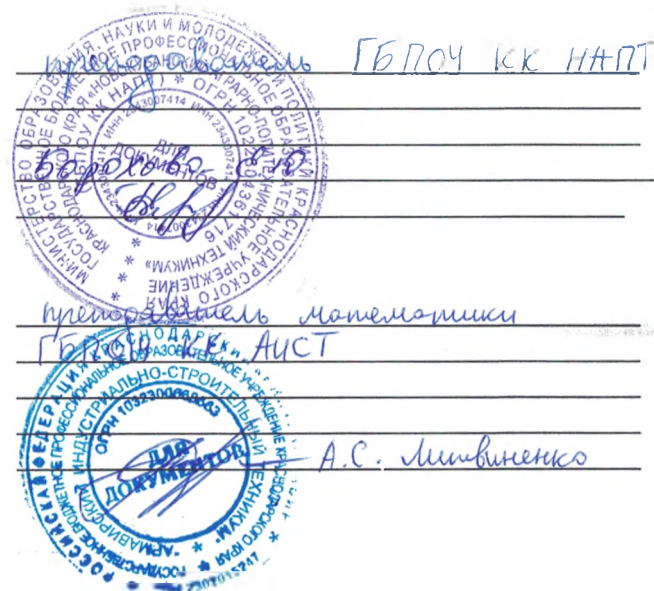 преподаватель ГБПОУ КК НАПТ
МИНИСТЕРСТВО ОБРАЗОВАНИЯ, НАУКИ И МОЛОДЕЖНОЙ ПОЛИТИКИ КРАСНОДАРСКОГО КРАЯ
ГОСУДАРСТВЕННОЕ БЮДЖЕТНОЕ ПРОФЕССИОНАЛЬНОЕ ОБРАЗОВАТЕЛЬНОЕ УЧРЕЖДЕНИЕ
КРАСНОДАРСКОГО КРАЯ «НОВОКУБАНСКИЙ АГРАРНО-ПОЛИТЕХНИЧЕСКИЙ ТЕХНИКУМ»
(ГБПОУ КК НАПТ) * ОГРН
ИНН 2343007414
ДЛЯ
ДОКУМЕНТОВ
преподаватель математики
ГБПОУ КК АИСТ
РОССИЙСКАЯ ФЕДЕРАЦИЯ
ГОСУДАРСТВЕННОЕ БЮДЖЕТНОЕ ПРОФЕССИОНАЛЬНОЕ ОБРАЗОВАТЕЛЬНОЕ УЧРЕЖДЕНИЕ КРАСНОДАРСКОГО КРАЯ
"АРМАВИРСКИЙ ИНДУСТРИАЛЬНО-СТРОИТЕЛЬНЫЙ ТЕХНИКУМ"
ОГРН
ДЛЯ
ДОКУМЕНТОВ
А.С. Литвиненко